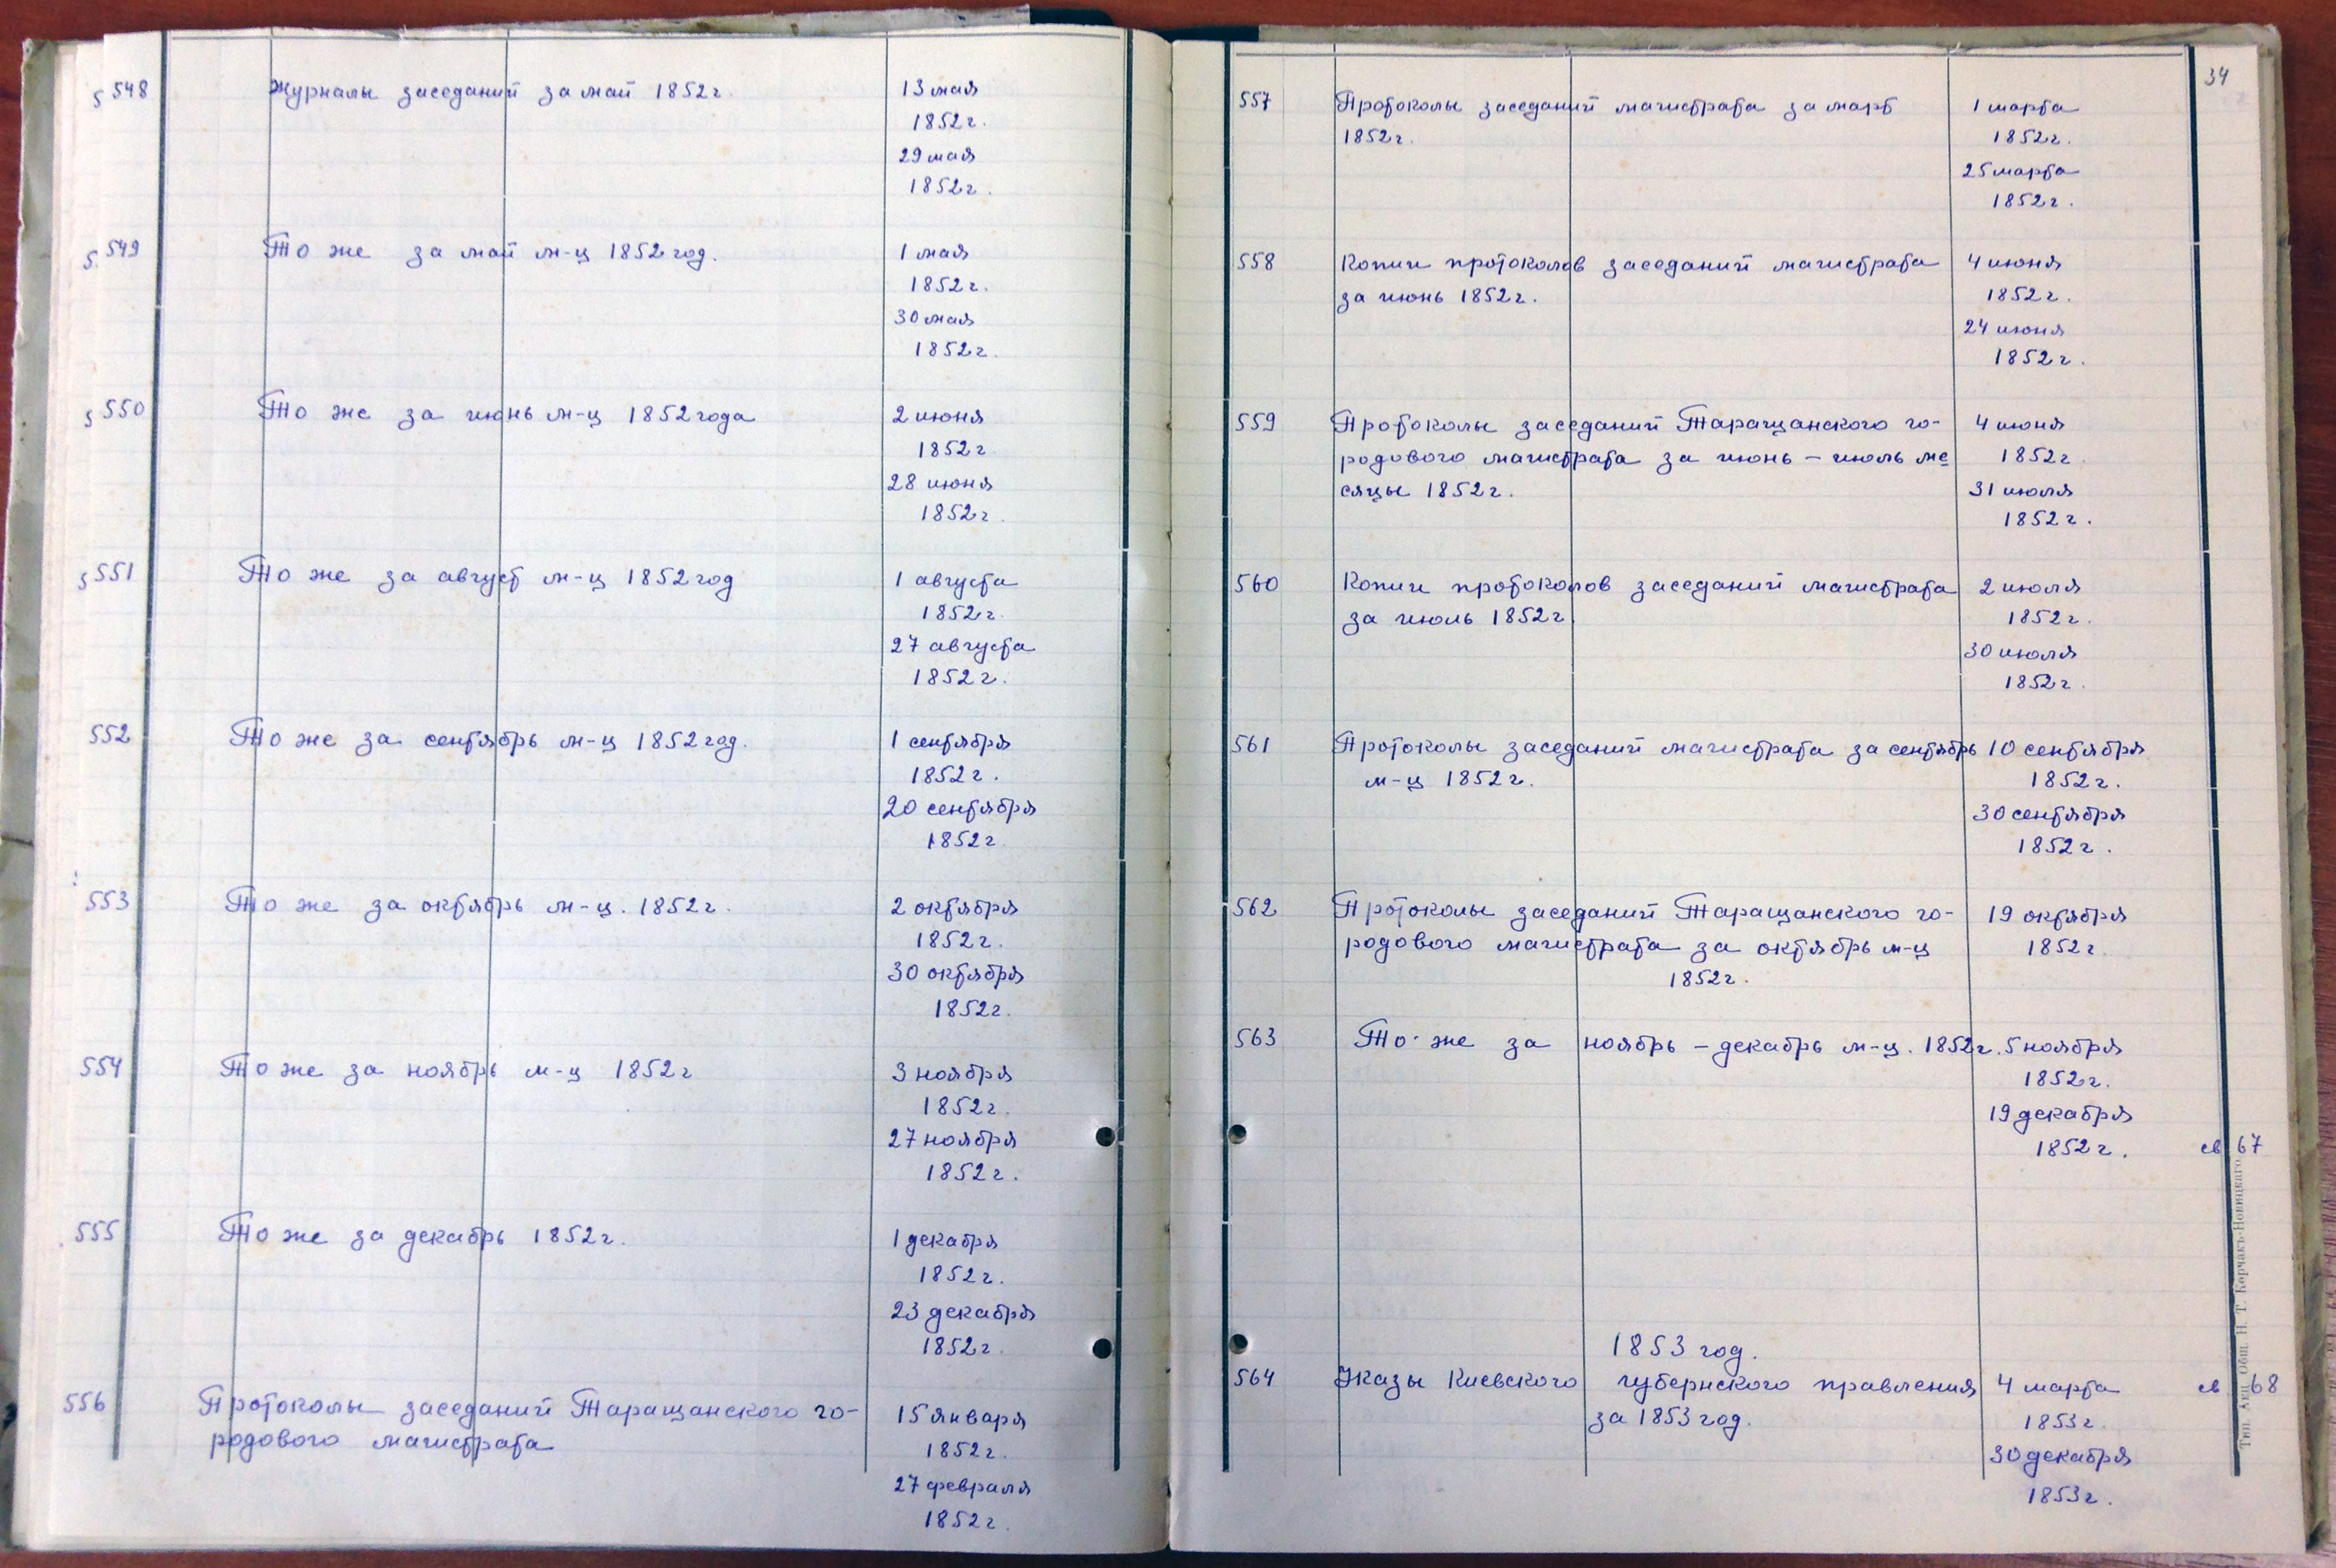 548 Журналы заседаний за май 1852г. 13 мая
1852г.
29 мая
1852г.
549 То же за май м-ц 1852 год. 1 мая
1852г.
30 мая
1852г.
550 То же за июнь м-ц 1852 года 2 июня
1852г
28 июня
1852г.
551 То же за август м-ц 1852 год 1 августа
1852г.
27 августа
1852г.
552 То же за сентябрь м-ц 1852 год. 1 сентября
1852г.
20 сентября
1852г.
553 То же за октябрь м-ц. 1852г. 2 октября
1852г.
30 октября
1852г.
554 То же за ноябрь м-ц 1852г 3 ноября
1852г.
27 ноября
1852г.
555 То же за декабрь 1852г. 1 декабря
1852г.
23 декабря
1852г.
556 Протоколы заседаний Таращанского го- 15 января
родового магистрата 1852г.
27 февраля
1852г.
34
557 Протоколы заседаний магистрата за март 1 марта
1852г. 1852г.
25 марта
1852г.
558 Копии протоколов заседаний магистрата 4 июня
за июнь 1852г. 1852г.
24 июня
1852г.
559 Протоколы заседаний Таращанского го- 4 июня
родового магистрата за июнь – июль ме 1852г
сяцы 1852г. 31 июля
1852г.
560 Копии протоколов заседаний магистрата 2 июля
за июль 1852г. 1852г.
30 июля
1852г.
561 Протоколы заседаний магистрата за сентябрь 10 сентября
м-ц 1852г. 1852г.
30 сентября
1852г.
562 Протоколы заседаний Таращанского го- 19 октября
родового магистрата за октябрь м-ц 1852г.
1852г.
563 То же за ноябрь – декабрь м-ц. 1852г. 5 ноября
1852г.
19 декабря
1852г. св 67
1853 год.
564 Указы Киевского губернского правления 4 марта св 68
за 1853 год. 1853г.
30 декабря
1853г.
Тип. Акц. Общ. Н. Т. Корчакъ-Новицкаго